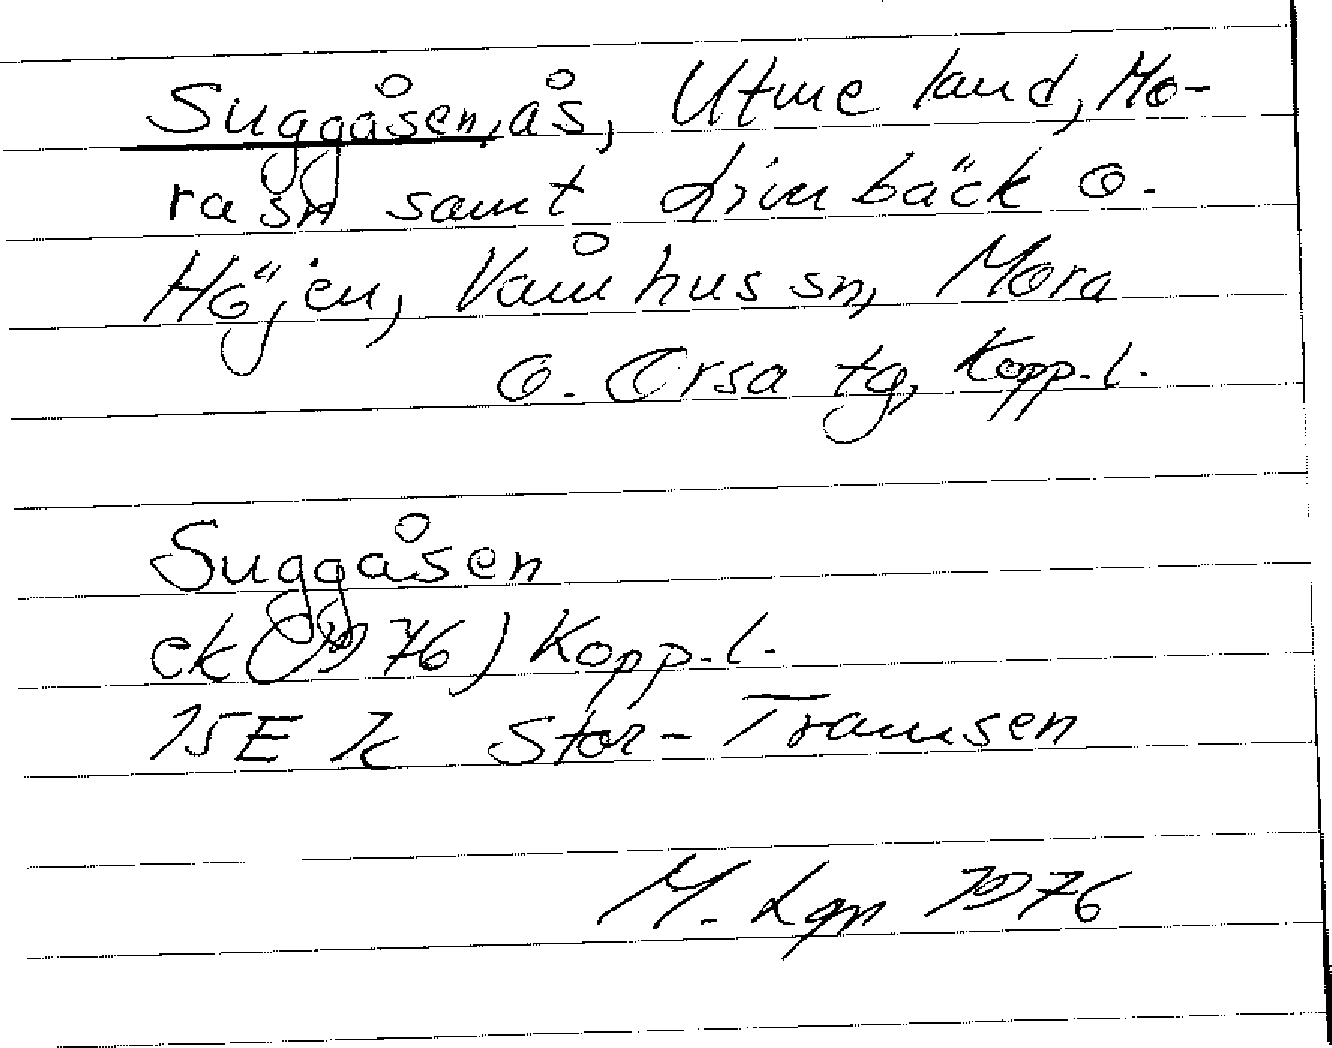 Suggåsen, ås, Utmeland, Mo-
ra sn samt Limbäck o.
Höjen, Våmhus sn, Mora
o. Orsa tg, Kopp. l.
Suggåsen
ek (1976) Kopp. l.
15E 7c Stor-Tramsen
M. Lgn 1976